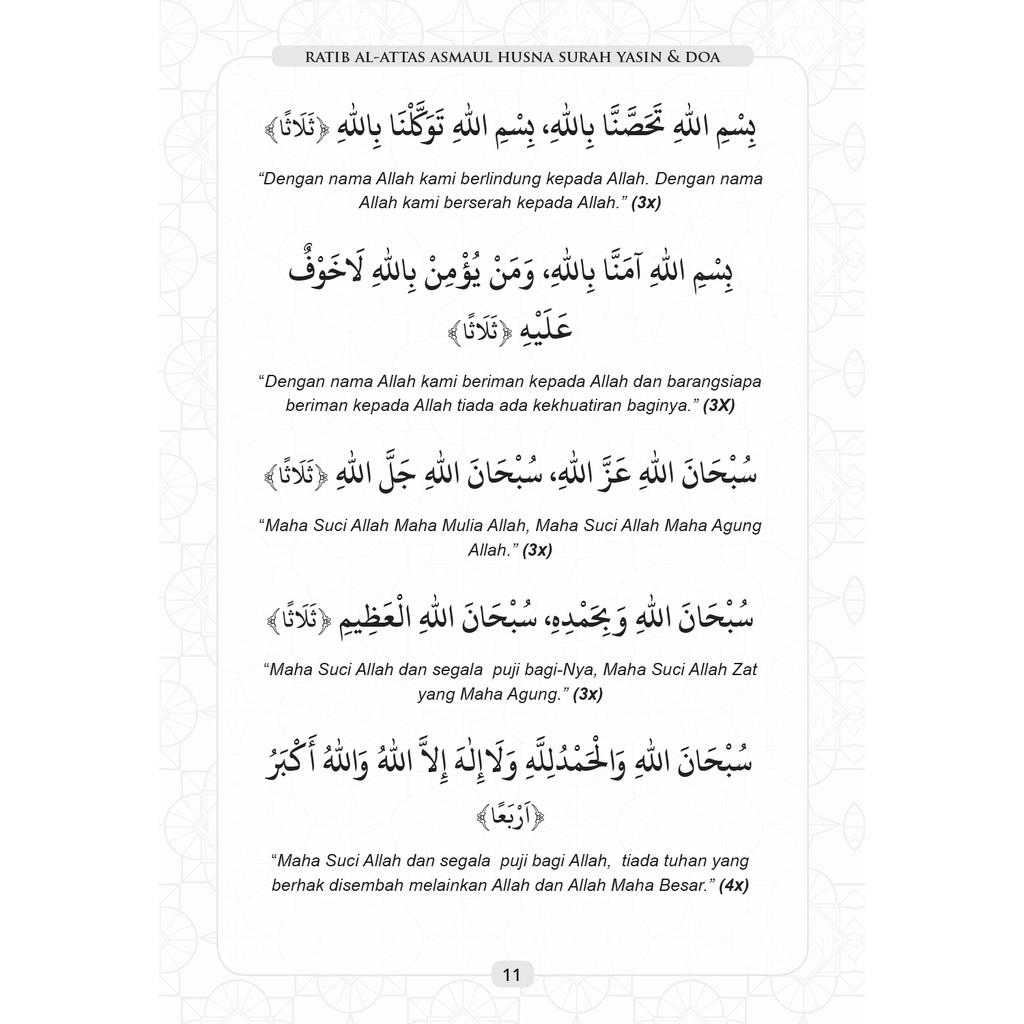 RATIB AL-ATTAS ASMAUL HUSNA SURAH YASIN & DOA
بِسْمِ اللهِ تَحَصَّنَّا بِاللهِ، بِسْمِ اللهِ تَوَكَّلْنَا بِاللهِ ﴿ثَلَاثًا﴾
“Dengan nama Allah kami berlindung kepada Allah. Dengan nama
Allah kami berserah kepada Allah.” (3x)
بِسْمِ اللهِ آمَنَّا بِاللهِ، وَمَنْ يُؤْمِنْ بِاللهِ لَاخَوْفٌ
عَلَيْهِ ﴿ثَلَاثًا﴾
“Dengan nama Allah kami beriman kepada Allah dan barangsiapa
beriman kepada Allah tiada ada kekhuatiran baginya.” (3X)
سُبْحَانَ اللهِ عَزَّ اللهِ، سُبْحَانَ اللهِ جَلَّ اللهِ ﴿ثَلَاثًا﴾
“Maha Suci Allah Maha Mulia Allah, Maha Suci Allah Maha Agung
Allah.” (3x)
سُبْحَانَ اللهِ وَبِحَمْدِهِ، سُبْحَانَ اللهِ الْعَظِيمِ ﴿ثَلَاثًا﴾
“Maha Suci Allah dan segala  puji bagi-Nya, Maha Suci Allah Zat
yang Maha Agung.” (3x)
سُبْحَانَ اللهِ وَالْحَمْدُلِلَّهِ وَلَاإِلٰهَ إِلاَّ اللهُ وَاللهُ أَكْبَرُ
﴿اَرْبَعًا﴾
“Maha Suci Allah dan segala  puji bagi Allah,  tiada tuhan yang
berhak disembah melainkan Allah dan Allah Maha Besar.” (4x)
11